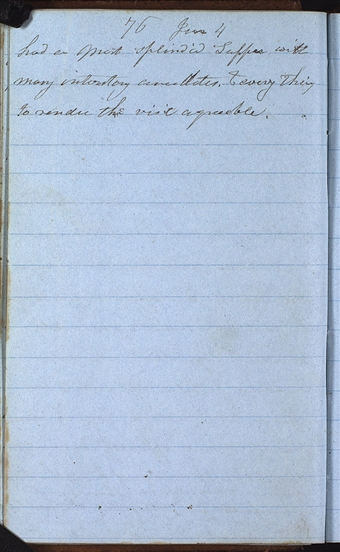 76 Jan 4
had a most splendid Supper with
many interesting anecdotes, & every thing
to render the visit agreeable.